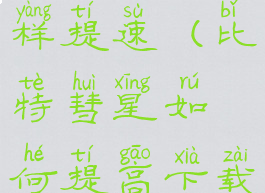 yàng tí sù bǐ
样提速（比
tè huì xīng rú
特彗星如
hé tí gāo xià zài
何提高下载